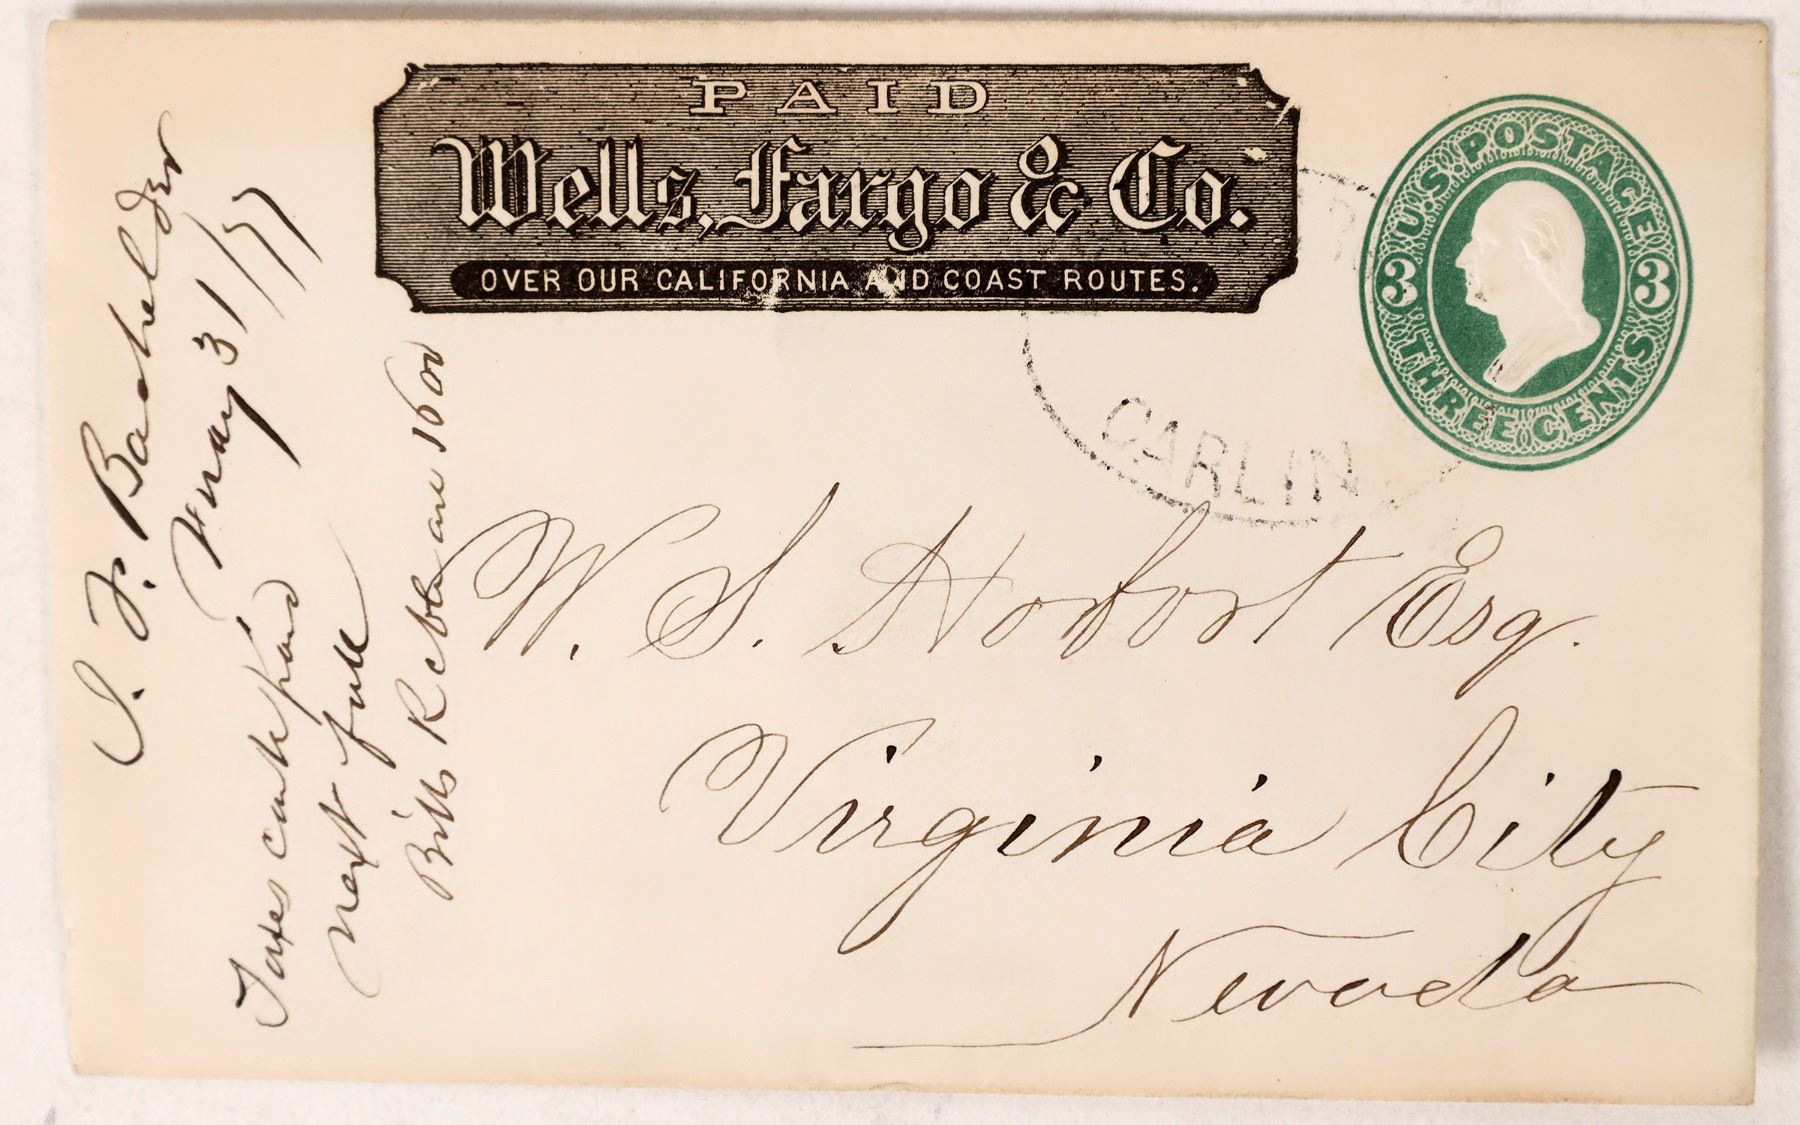 PAID
Wells, Fargo & Co.
OVER OUR CALIFORNIA AND COAST ROUTES.
U.S POSTAGE
3 3
THREE CENTS
CARLIN
W. S. Hobart Esq.
Virginia City
Nevada
S. F. Bachelder
May 31/77
Taxes cant paid
next full
Bills 1600